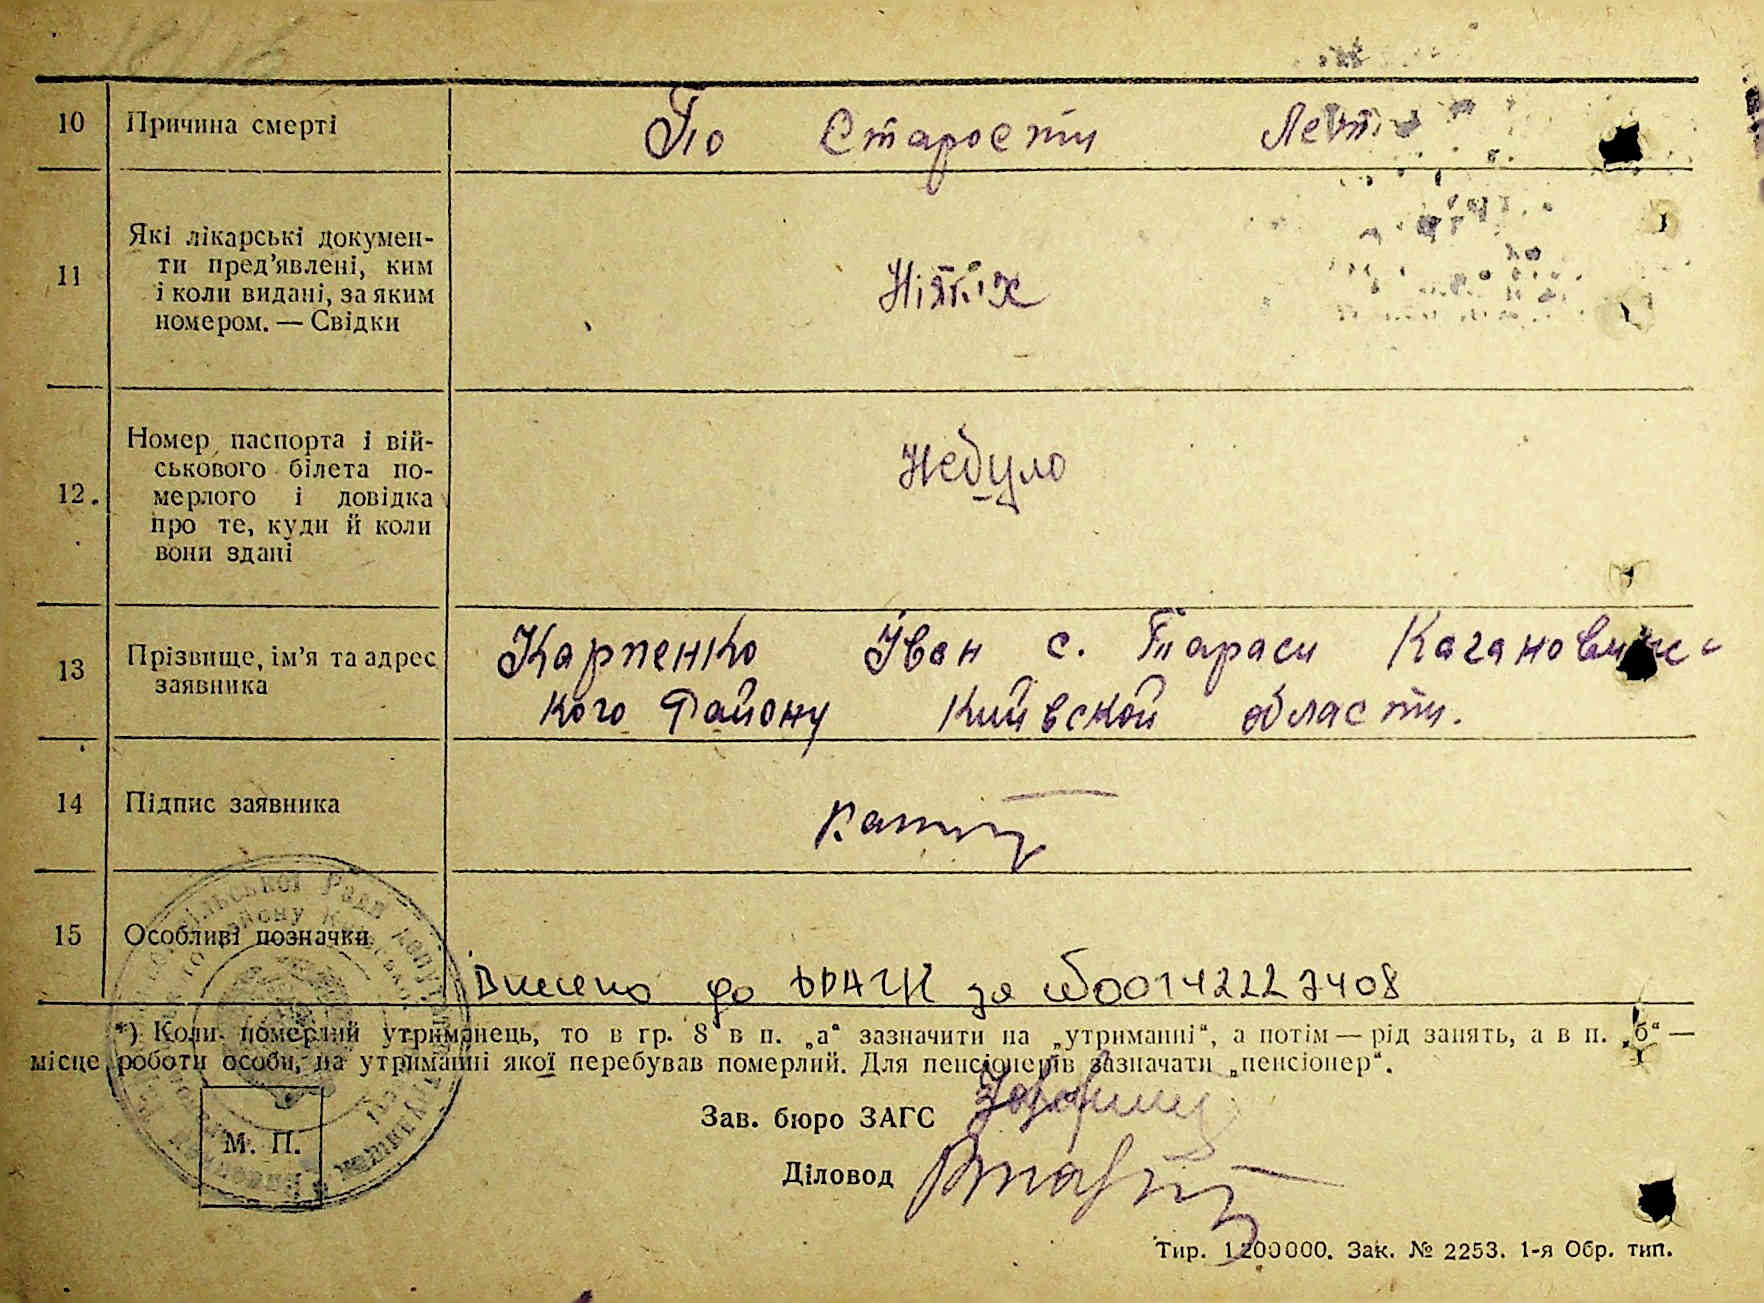 10 Причина смерті По Старости Лет
11 Які лікарські докумен-
ти пред’явлені, ким
і коли видані, за яким
номером. — Свідки
Ніяких
12. Номер паспорта і вій-
ськового білета по-
мерлого і довідка
про те, куди й коли
вони здані
Небуло
13 Прізвище, ім’я та адрес
заявника
Карпенко Іван с. Тараси Кагановичс-
кого Району Київской области.
14 Підпис заявника
15 Особливі позначки
Внесено до ДРАЦС за №00142227408
*) Коли померлий утриманець, то в гр. 8 в п. „а“ зазначити на „утриманні“, а потім — рід занять, а в п. „б“ —
місце роботи особи, на утриманні якої перебував померлий. Для пенсіонерів зазначати „пенсіонер“.
Зав. бюро ЗАГС
М. П.
Діловод
Тир. 1200000. Зак. № 2253. 1-я Обр. тип.